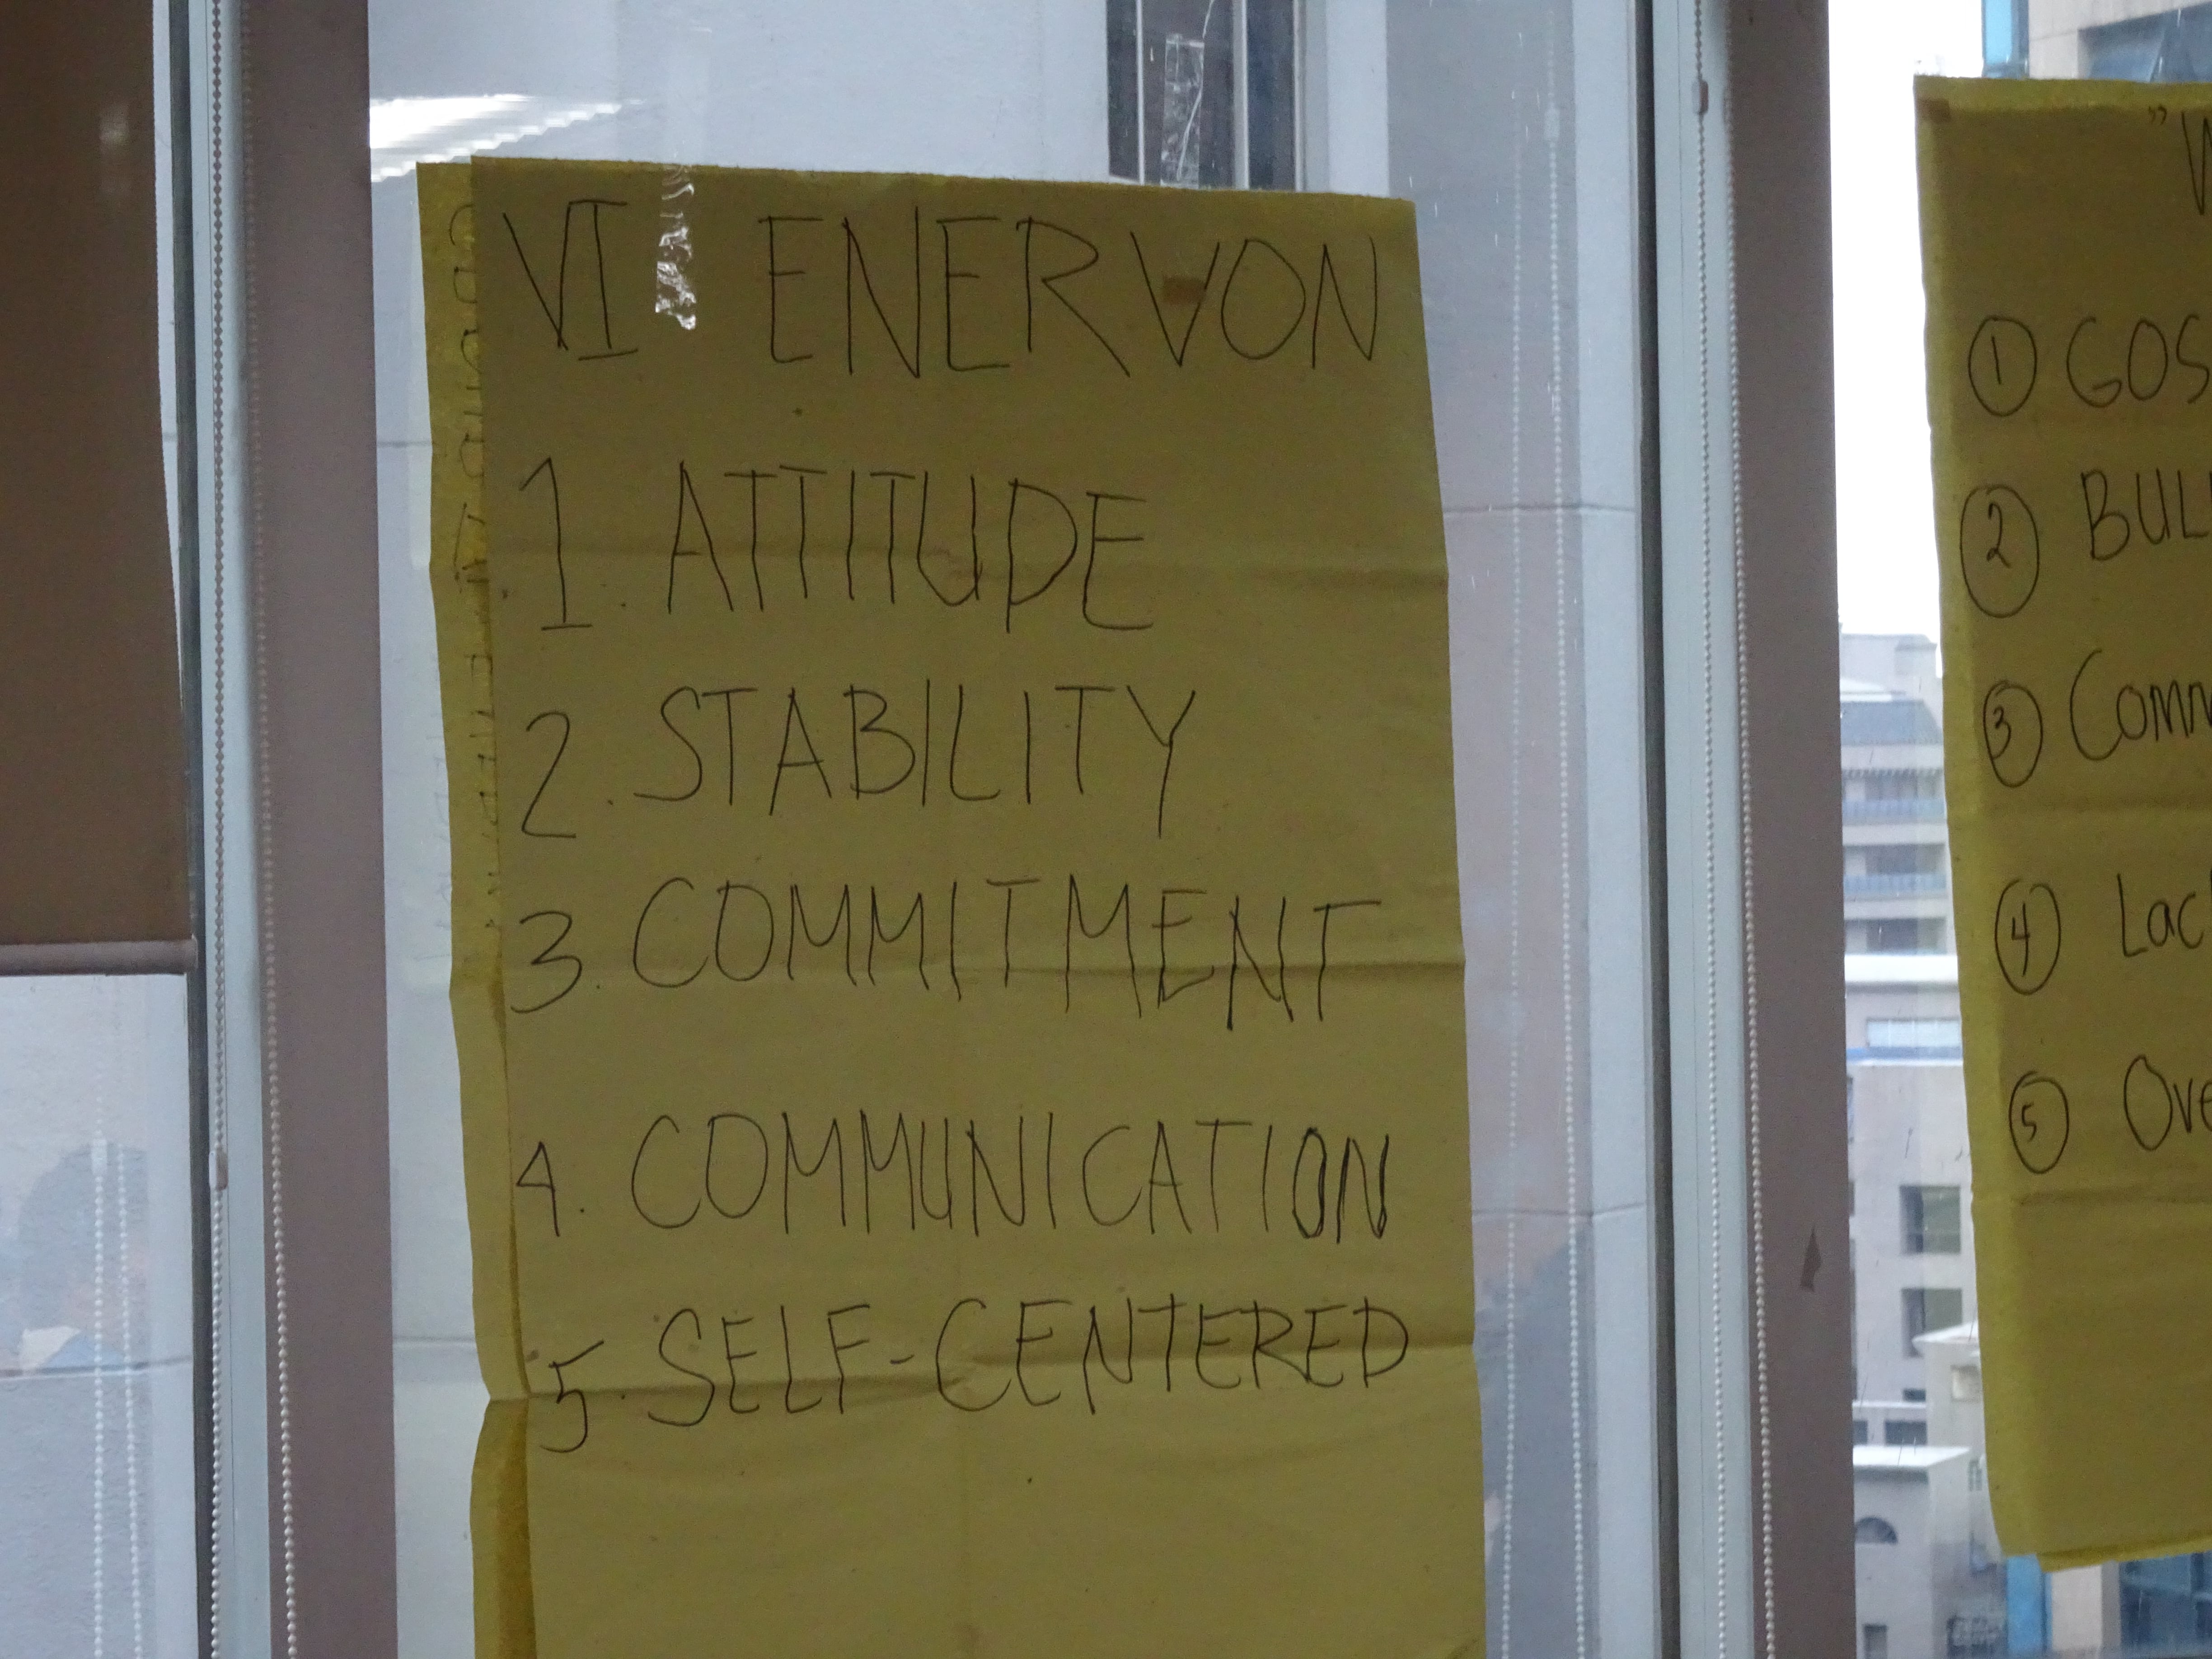 VI ENERVON
1. ATTITUDE
2. STABILITY
3. COMMITMENT
4. COMMUNICATION
5. SELF-CENTERED
① GOS
② BULL
③ Comm
④ Lac
⑤ Ove